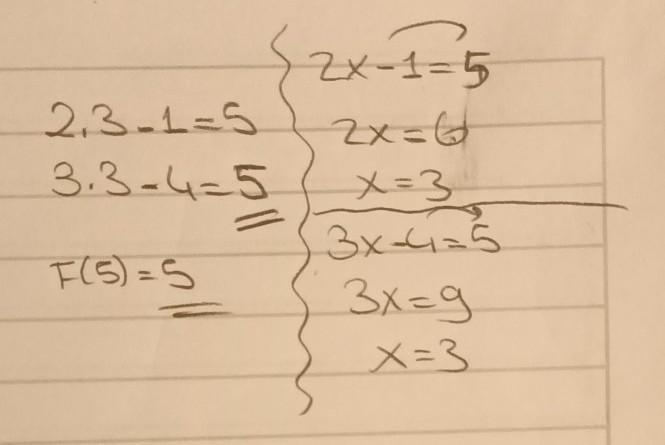 2.3-1=5
3.3-4=5
F(5)=5
2x-1=5
2x=6
x=3
3x-4=5
3x=9
x=3